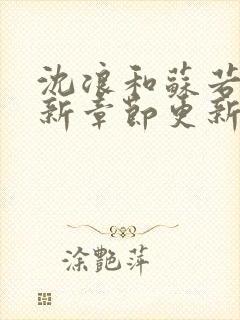 沈浪和蘇若
新章節更新
涂艷萍